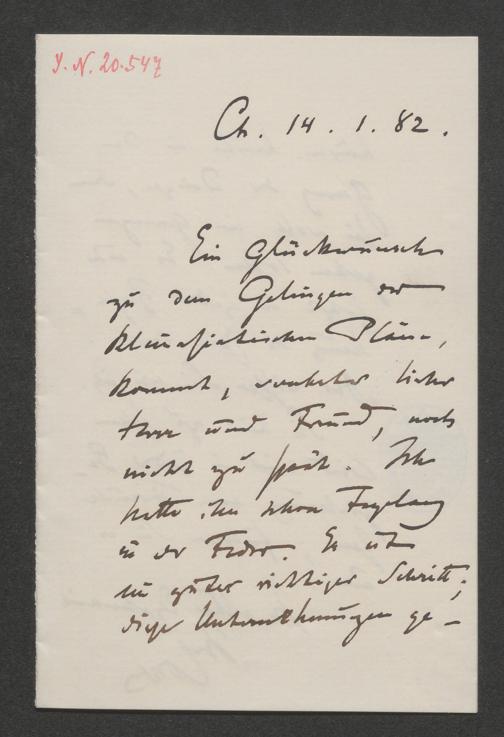 J. N. 20.547
Ch. 14. 1. 82.
Ein Glückwunsch
zu dem Gelingen der
kleinasiatischen Pläne,
kommt, verehrter lieber
Herr und Freund, noch
nicht zu spät. Ich
hatte ihn schon Tagelang
in der Feder. Es ist
ein guter richtiger Schritt;
diese Unternehmungen ge-